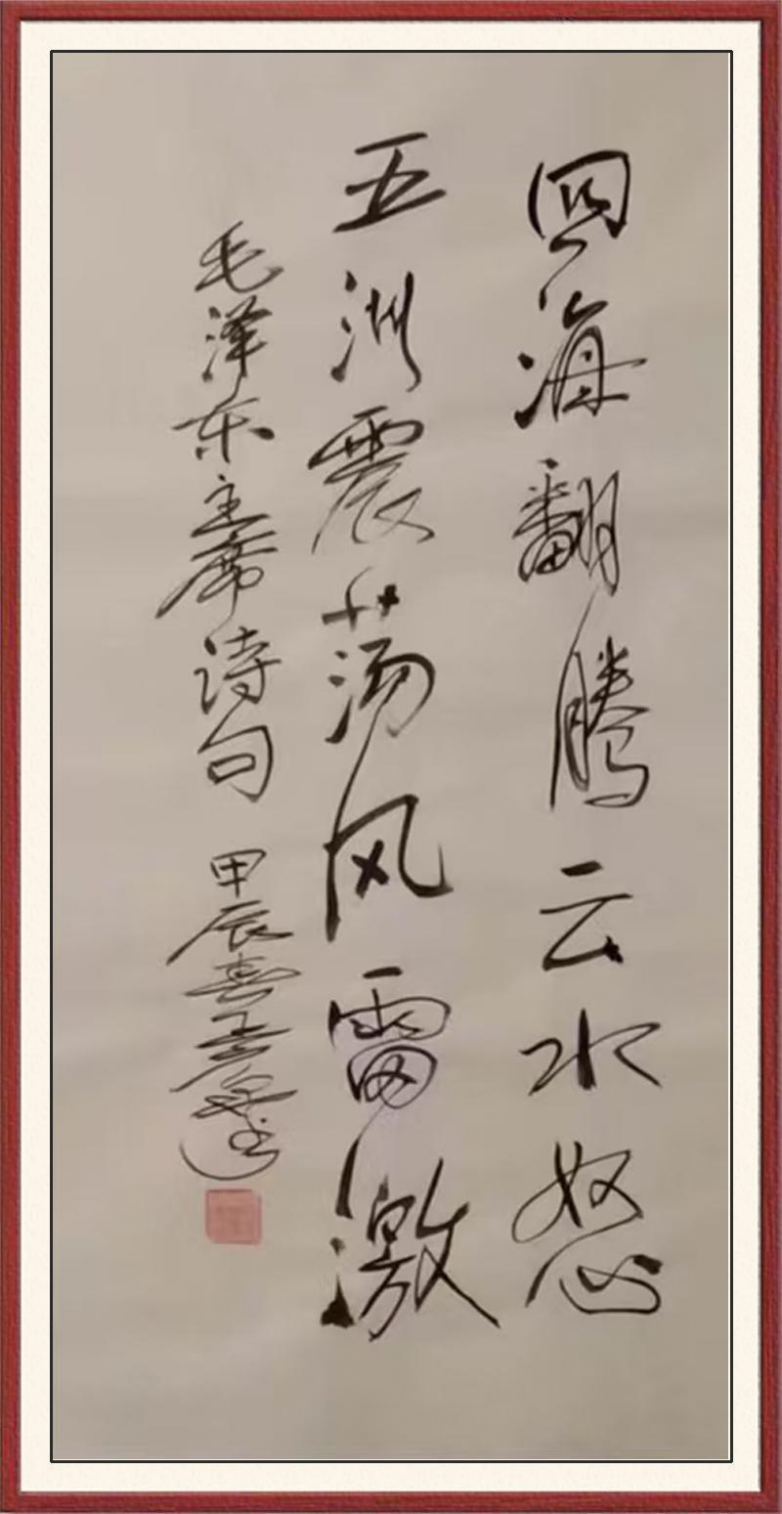 四海翻腾云水怒
五洲震荡风雷激
毛泽东主席诗句 甲辰